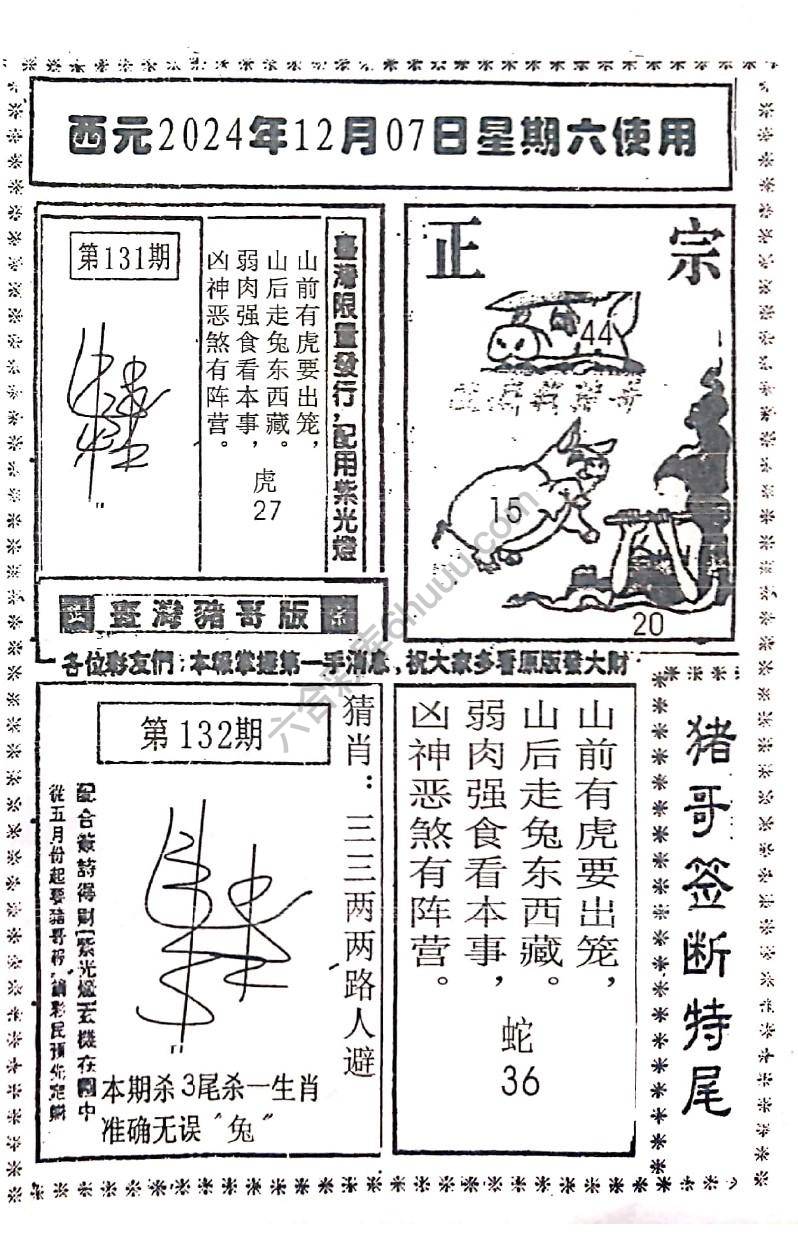 西元2024年12月07日星期六使用
第131期
臺灣限量發行，配用紫光燈
山前有虎要出笼，
山后走兔东西藏。
弱肉强食看本事，
凶神恶煞有阵营。
虎
27
正宗
44
15
20
正 臺灣豬哥版 宗
各位彩友們：本報掌握第一手消息，祝大家多看原版發大財
第132期
猜肖：三三两两路人避
配合簽詩得財［紫光燈］玄機在圖中
本期杀3尾杀一生肖
准确无误“兔”
山前有虎要出笼，
山后走兔东西藏。
弱肉强食看本事，
凶神恶煞有阵营。
蛇
36
猪哥签断特尾
六合彩库ohuuu.com